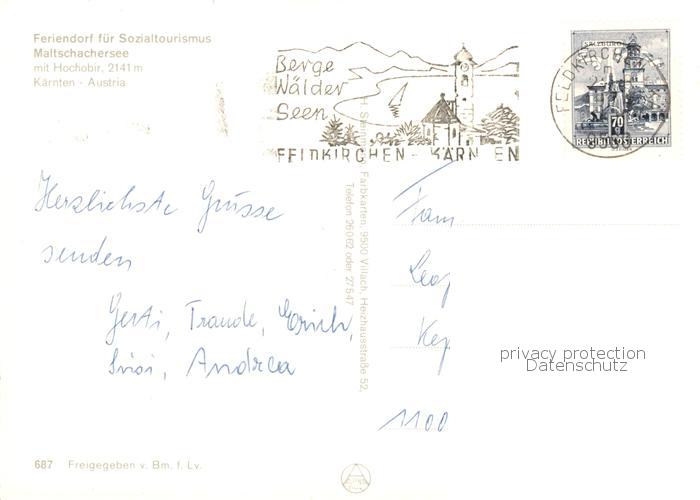 Feriendorf für Sozialtourismus
Maltschachersee
mit Hochobir, 2141 m
Kärnten - Austria
Berge
Wälder
Seen
FELDKIRCHEN - KÄRN EN
FELDKIRCH
SALZBURG
70
REPUBLIK ÖSTERREICH
Herzlichste Grüsse
senden
Gerti, Traude, Erich,
Susi, Andrea
Farbkarten, 9500 Villach, Heizhausstraße 52,
Telefon 26062 oder 27547
Fam
Leo
1100
privacy protection
Datenschutz
687 Freigegeben v. Bm. f. Lv.